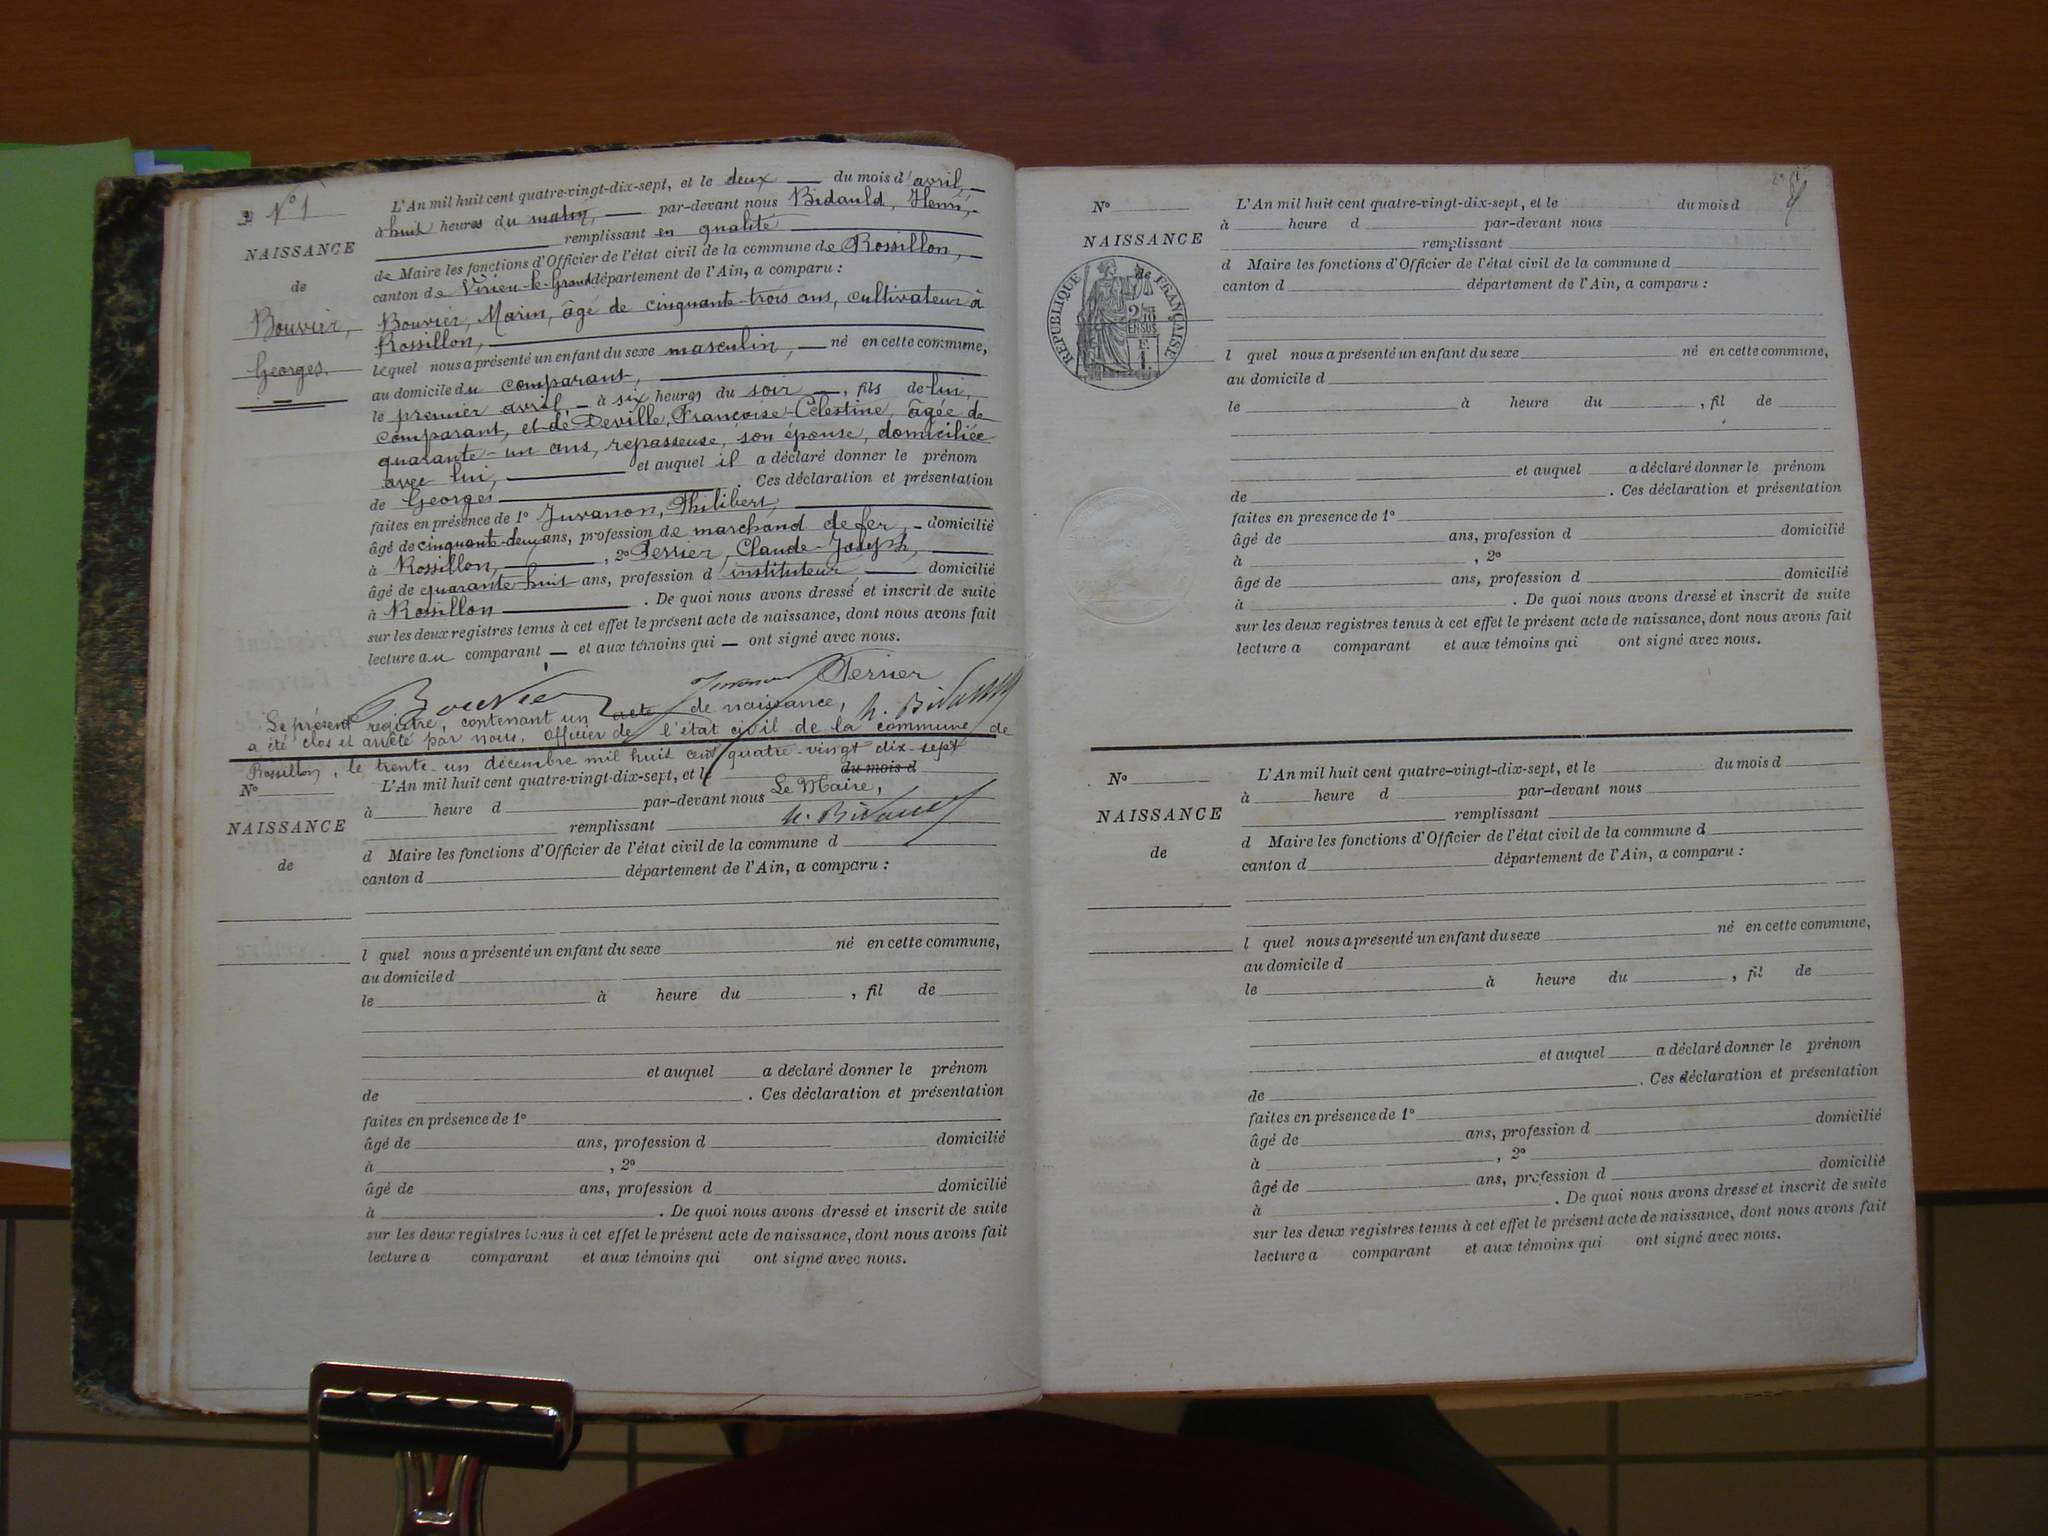 N° 1
NAISSANCE
de
Bouvier,
Georges.
L'An mil huit cent quatre-vingt-dix-sept, et le deux du mois d'avril,
à huit heures du matin, par-devant nous Bidauld, Henri,
remplissant en qualité
de Maire les fonctions d'Officier de l'état civil de la commune de Rossillon,
canton de Virieu-le-Grand département de l'Ain, a comparu :
Bouvier, Marin, âgé de cinquante-trois ans, cultivateur à
Rossillon,
lequel nous a présenté un enfant du sexe masculin, né en cette commune,
au domicile du comparant,
le premier avril à six heures du soir, fils de lui,
comparant, et de Deville, Françoise-Célestine, âgée de
quarante-un ans, repasseuse, son épouse, domiciliée
avec lui, et auquel il a déclaré donner le prénom
de Georges. Ces déclaration et présentation
faites en présence de 1° Juvanon, Philibert,
âgé de cinquante-deux ans, profession de marchand de fer, domicilié
à Rossillon, , 2° Perrier, Claude-Joseph,
âgé de quarante-huit ans, profession d'instituteur, domicilié
à Rossillon. De quoi nous avons dressé et inscrit de suite
sur les deux registres tenus à cet effet le présent acte de naissance, dont nous avons fait
lecture au comparant et aux témoins qui ont signé avec nous.
Juvanon Perrier
Bouvier
H. Bidauld
Le présent registre, contenant un acte de naissance,
a été clos et arrêté par nous, officier de l'état civil de la commune de
Rossillon, le trente-un décembre mil huit cent quatre-vingt dix-sept
Le Maire,
H. Bidauld
N°
NAISSANCE
de
L'An mil huit cent quatre-vingt-dix-sept, et le du mois d
à heure d par-devant nous
remplissant
d Maire les fonctions d'Officier de l'état civil de la commune d
canton d département de l'Ain, a comparu :
l quel nous a présenté un enfant du sexe né en cette commune,
au domicile d
le à heure du , fil de
et auquel a déclaré donner le prénom
de . Ces déclaration et présentation
faites en présence de 1°
âgé de ans, profession d domicilié
à , 2°
âgé de ans, profession d domicilié
à . De quoi nous avons dressé et inscrit de suite
sur les deux registres tenus à cet effet le présent acte de naissance, dont nous avons fait
lecture a comparant et aux témoins qui ont signé avec nous.
N°
NAISSANCE
de
RÉPUBLIQUE FRANÇAISE
2/10
EN SUS
E
1
L'An mil huit cent quatre-vingt-dix-sept, et le du mois d
à heure d par-devant nous
remplissant
d Maire les fonctions d'Officier de l'état civil de la commune d
canton d département de l'Ain, a comparu :
l quel nous a présenté un enfant du sexe né en cette commune,
au domicile d
le à heure du , fil de
et auquel a déclaré donner le prénom
de . Ces déclaration et présentation
faites en présence de 1°
âgé de ans, profession d domicilié
à , 2°
âgé de ans, profession d domicilié
à . De quoi nous avons dressé et inscrit de suite
sur les deux registres tenus à cet effet le présent acte de naissance, dont nous avons fait
lecture a comparant et aux témoins qui ont signé avec nous.
N°
NAISSANCE
de
L'An mil huit cent quatre-vingt-dix-sept, et le du mois d
à heure d par-devant nous
remplissant
d Maire les fonctions d'Officier de l'état civil de la commune d
canton d département de l'Ain, a comparu :
l quel nous a présenté un enfant du sexe né en cette commune,
au domicile d
le à heure du , fil de
et auquel a déclaré donner le prénom
de . Ces déclaration et présentation
faites en présence de 1°
âgé de ans, profession d domicilié
à , 2°
âgé de ans, profession d domicilié
à . De quoi nous avons dressé et inscrit de suite
sur les deux registres tenus à cet effet le présent acte de naissance, dont nous avons fait
lecture a comparant et aux témoins qui ont signé avec nous.